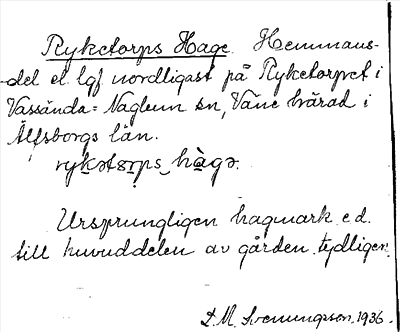 Ryketorps Hage. Hemmans-
del el. lgf nordligast på Ryketorpet i
Vassända-Naglum sn, Väne härad i
Älfsborgs län.
rykətɔrps hàgə.
Ursprungligen hagmark e.d.
till huvuddelen av gården tydligen.
D.M. Svenungsson, 1936.